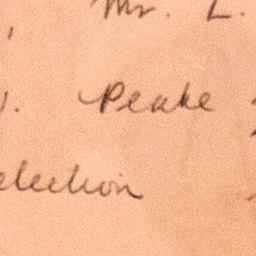 Mr. L.
Peake
election